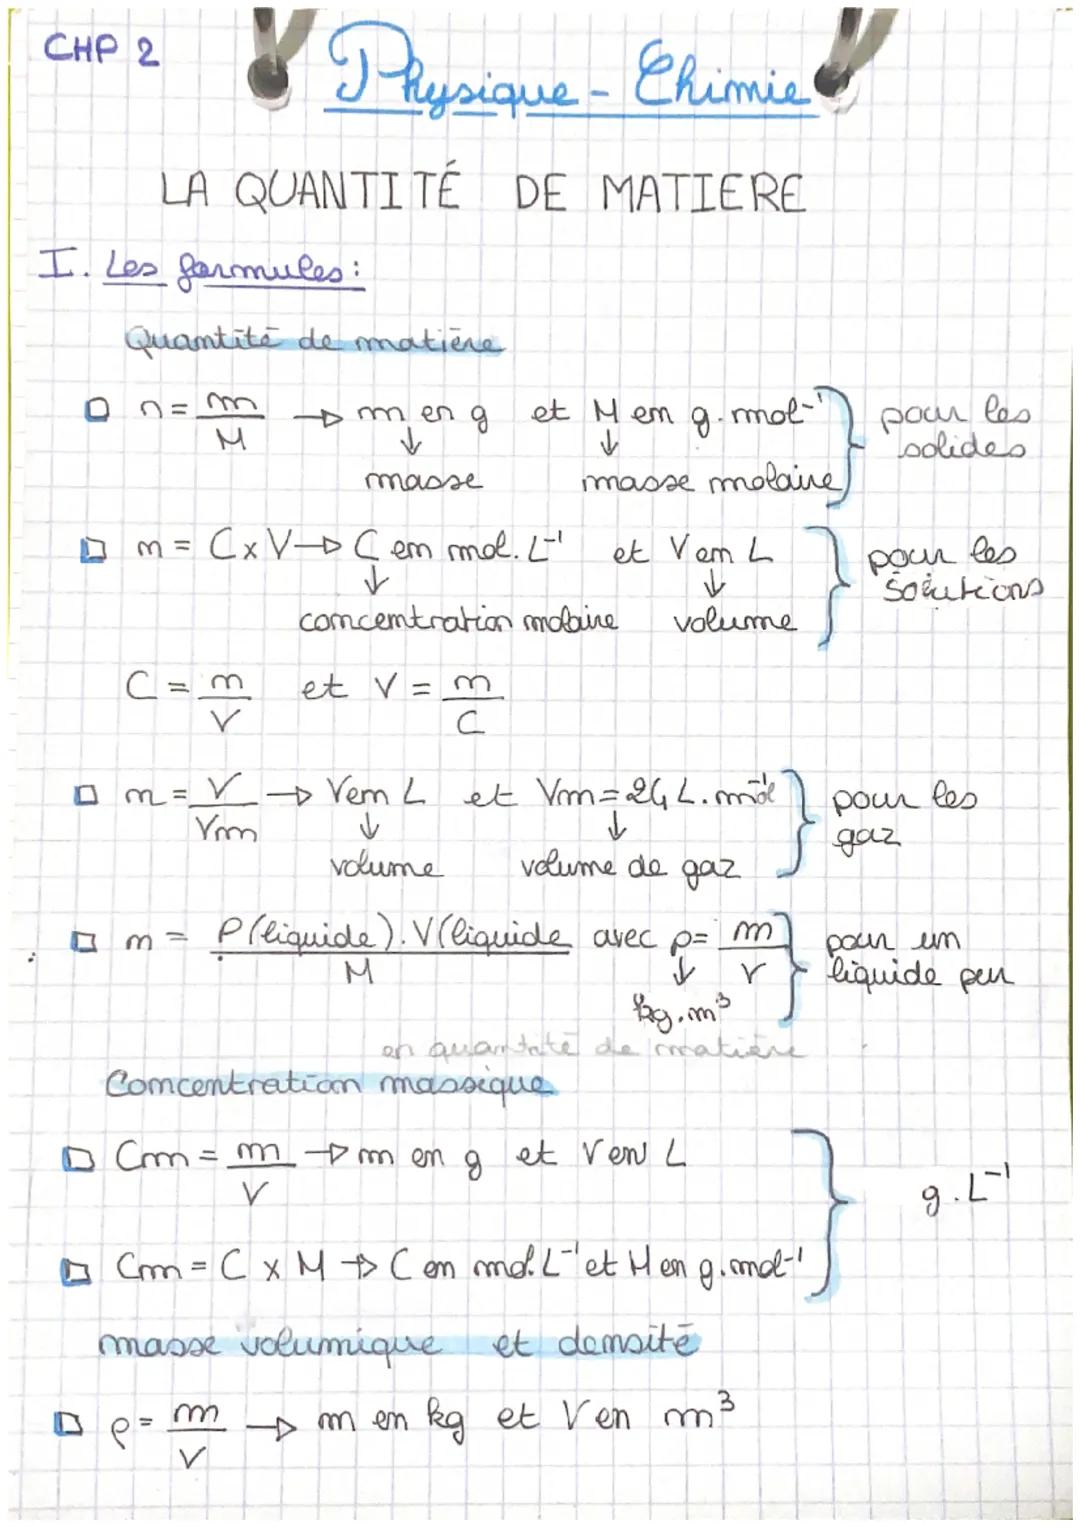 CHP 2
Physique - Chimie
LA QUANTITÉ DE MATIERE
I. Les formules :
Quantité de matière
n = m/M → m en g et M en g.mol⁻¹ } pour les solides
↓ masse ↓ masse molaire
n = C x V → C en mol.L⁻¹ et V en L } pour les solutions
↓ concentration molaire ↓ volume
C = n/V et V = n/C
n = V/Vm → V en L et Vm = 24 L.mol⁻¹ } pour les gaz
↓ volume ↓ volume de gaz
n = ρ(liquide).V(liquide / M avec ρ = m/V } pour un liquide pur
↓ kg.m³
en quantité de matière
Concentration massique
Cm = m/V → m en g et V en L } g.L⁻¹
Cm = C x M → C en mol.L⁻¹ et M en g.mol⁻¹
masse volumique et densité
ρ = m/V → m en kg et V en m³